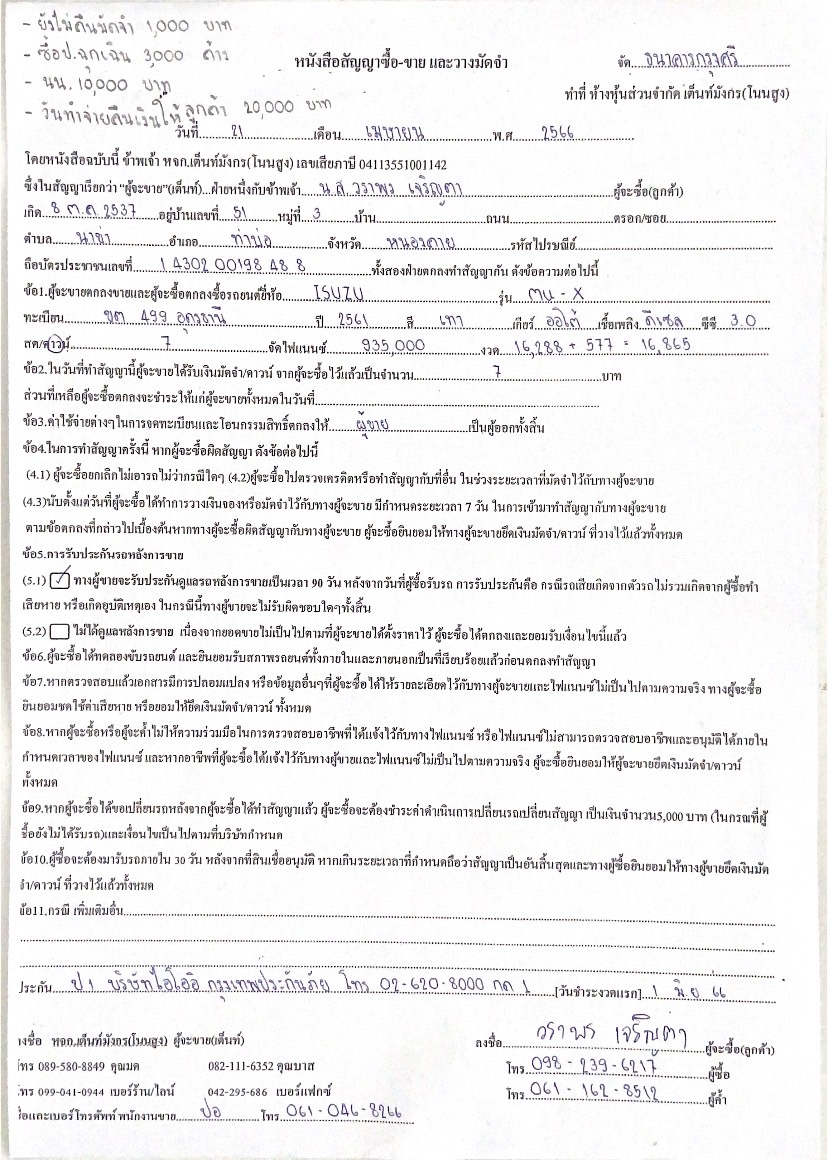 - ยังไม่คืนมัดจำ 1,000 บาท
- ซื้อป.ฉุกเฉิน 3,000 ค้าง
- นน. 10,000 บาท
- วันทำจ่ายคืนเงินให้ลูกค้า 20,000 บาท
หนังสือสัญญาซื้อ-ขาย และวางมัดจำ
จัด ธนาคารกรุงศรี
ทำที่ ห้างหุ้นส่วนจำกัด เต็นท์มังกร(โนนสูง)
วันที่ 21 เดือน เมษายน พ.ศ 2566
โดยหนังสือฉบับนี้ ข้าพเจ้า หจก.เต็นท์มังกร(โนนสูง) เลขเสียภาษี 04113551001142
ซึ่งในสัญญาเรียกว่า "ผู้จะขาย"(เต็นท์)...ฝ่ายหนึ่งกับข้าพเจ้า น.ส. วราพร เจริญตา ผู้จะซื้อ(ลูกค้า)
เกิด 8 ต.ค 2537 อยู่บ้านเลขที่ 51 หมู่ที่ 3 บ้าน ถนน ตรอก/ซอย
ตำบล นาข่า อำเภอ ท่าบ่อ จังหวัด หนองคาย รหัสไปรษณีย์
ถือบัตรประชาชนเลขที่ 1 4302 00198 48 8 ทั้งสองฝ่ายตกลงทำสัญญากัน ดังข้อความต่อไปนี้
ข้อ1.ผู้จะขายตกลงขายและผู้จะซื้อตกลงซื้อรถยนต์ยี่ห้อ ISUZU รุ่น mu - X
ทะเบียน ขต 499 อุดรธานี ปี 2561 สี เทา เกียร์ ออโต้ เชื้อเพลิง ดีเซล ซีซี 3.0
สด/ดาวน์ 7 จัดไฟแนนซ์ 935,000 งวด 16,288 + 577 = 16,865
ข้อ2.ในวันที่ทำสัญญานี้ผู้จะขายได้รับเงินมัดจำ/ดาวน์ จากผู้จะซื้อไว้แล้วเป็นจำนวน 7 บาท
ส่วนที่เหลือผู้จะซื้อตกลงจะชำระให้แก่ผู้จะขายทั้งหมดในวันที่
ข้อ3.ค่าใช้จ่ายต่างๆในการจดทะเบียนและโอนกรรมสิทธิ์ตกลงให้ ผู้ขาย เป็นผู้ออกทั้งสิ้น
ข้อ4.ในการทำสัญญาครั้งนี้ หากผู้จะซื้อผิดสัญญา ดังข้อต่อไปนี้
(4.1) ผู้จะซื้อยกเลิกไม่เอารถไม่ว่ากรณีใดๆ (4.2)ผู้จะซื้อไปตรวจเครดิตหรือทำสัญญากับที่อื่น ในช่วงระยะเวลาที่มัดจำไว้กับทางผู้จะขาย
(4.3)นับตั้งแต่วันที่ผู้จะซื้อได้ทำการวางเงินจองหรือมัดจำไว้กับทางผู้จะขาย มีกำหนดระยะเวลา 7 วัน ในการเข้ามาทำสัญญากับทางผู้จะขาย
ตามข้อตกลงที่กล่าวไปเบื้องต้นหากทางผู้จะซื้อผิดสัญญากับทางผู้จะขาย ผู้จะซื้อยินยอมให้ทางผู้จะขายยึดเงินมัดจำ/ดาวน์ ที่วางไว้แล้วทั้งหมด
ข้อ5.การรับประกันรถหลังการขาย
(5.1) ทางผู้ขายจะรับประกันดูแลรถหลังการขายเป็นเวลา 90 วัน หลังจากวันที่ผู้ซื้อรับรถ การรับประกันคือ กรณีรถเสียเกิดจากตัวรถไม่รวมเกิดจากผู้ซื้อทำ
เสียหาย หรือเกิดอุบัติเหตุเอง ในกรณีนี้ทางผู้ขายจะไม่รับผิดชอบใดๆทั้งสิ้น
(5.2) ไม่ได้ดูแลหลังการขาย เนื่องจากยอดขายไม่เป็นไปตามที่ผู้จะขายได้ตั้งราคาไว้ ผู้จะซื้อได้ตกลงและยอมรับเงื่อนไขนี้แล้ว
ข้อ6.ผู้จะซื้อได้ทดลองขับรถยนต์ และยินยอมรับสภาพรถยนต์ทั้งภายในและภายนอกเป็นที่เรียบร้อยแล้วก่อนตกลงทำสัญญา
ข้อ7.หากตรวจสอบแล้วเอกสารมีการปลอมแปลง หรือข้อมูลอื่นๆที่ผู้จะซื้อได้ให้รายละเอียดไว้กับทางผู้จะขายและไฟแนนซ์ไม่เป็นไปตามความจริง ทางผู้จะซื้อ
ยินยอมชดใช้ค่าเสียหาย หรือยอมให้ยึดเงินมัดจำ/ดาวน์ ทั้งหมด
ข้อ8.หากผู้จะซื้อหรือผู้จะค้ำไม่ให้ความร่วมมือในการตรวจสอบอาชีพที่ได้แจ้งไว้กับทางไฟแนนซ์ หรือไฟแนนซ์ไม่สามารถตรวจสอบอาชีพและอนุมัติได้ภายใน
กำหนดเวลาของไฟแนนซ์ และหากอาชีพที่ผู้จะซื้อได้แจ้งไว้กับทางผู้ขายและไฟแนนซ์ไม่เป็นไปตามความจริง ผู้จะซื้อยินยอมให้ผู้จะขายยึดเงินมัดจำ/ดาวน์
ทั้งหมด
ข้อ9.หากผู้จะซื้อได้ขอเปลี่ยนรถหลังจากผู้จะซื้อได้ทำสัญญาแล้ว ผู้จะซื้อจะต้องชำระค่าดำเนินการเปลี่ยนรถเปลี่ยนสัญญา เป็นเงินจำนวน5,000 บาท (ในกรณที่ผู้
ซื้อยังไม่ได้รับรถ)และเงื่อนไขเป็นไปตามที่บริษัทกำหนด
ข้อ10.ผู้ซื้อจะต้องมารับรถภายใน 30 วัน หลังจากที่สินเชื่ออนุมัติ หากเกินระยะเวลาที่กำหนดถือว่าสัญญาเป็นอันสิ้นสุดและทางผู้ซื้อยินยอมให้ทางผู้ขายยึดเงินมัด
จำ/ดาวน์ ที่วางไว้แล้วทั้งหมด
ข้อ11.กรณี เพิ่มเติมอื่น
ประกัน ป.1 บริษัทไอโออิ กรุงเทพประกันภัย โทร 02-620-8000 กด 1 [วันชำระงวดแรก] 1 มิ.ย 66
งชื่อ หจก.เต็นท์มังกร(โนนสูง) ผู้จะขาย(เต็นท์)
ลงชื่อ วราพร เจริญตา ผู้จะซื้อ(ลูกค้า)
โทร 089-580-8849 คุณมด 082-111-6352 คุณบาส
โทร 098 - 239 - 6217 ผู้ซื้อ
โทร 099-041-0944 เบอร์ร้าน/ไลน์ 042-295-686 เบอร์แฟกซ์
โทร 061 - 162 - 8512 ผู้ค้ำ
ชื่อและเบอร์โทรศัพท์ พนักงานขาย ปอ โทร 061-046-8266